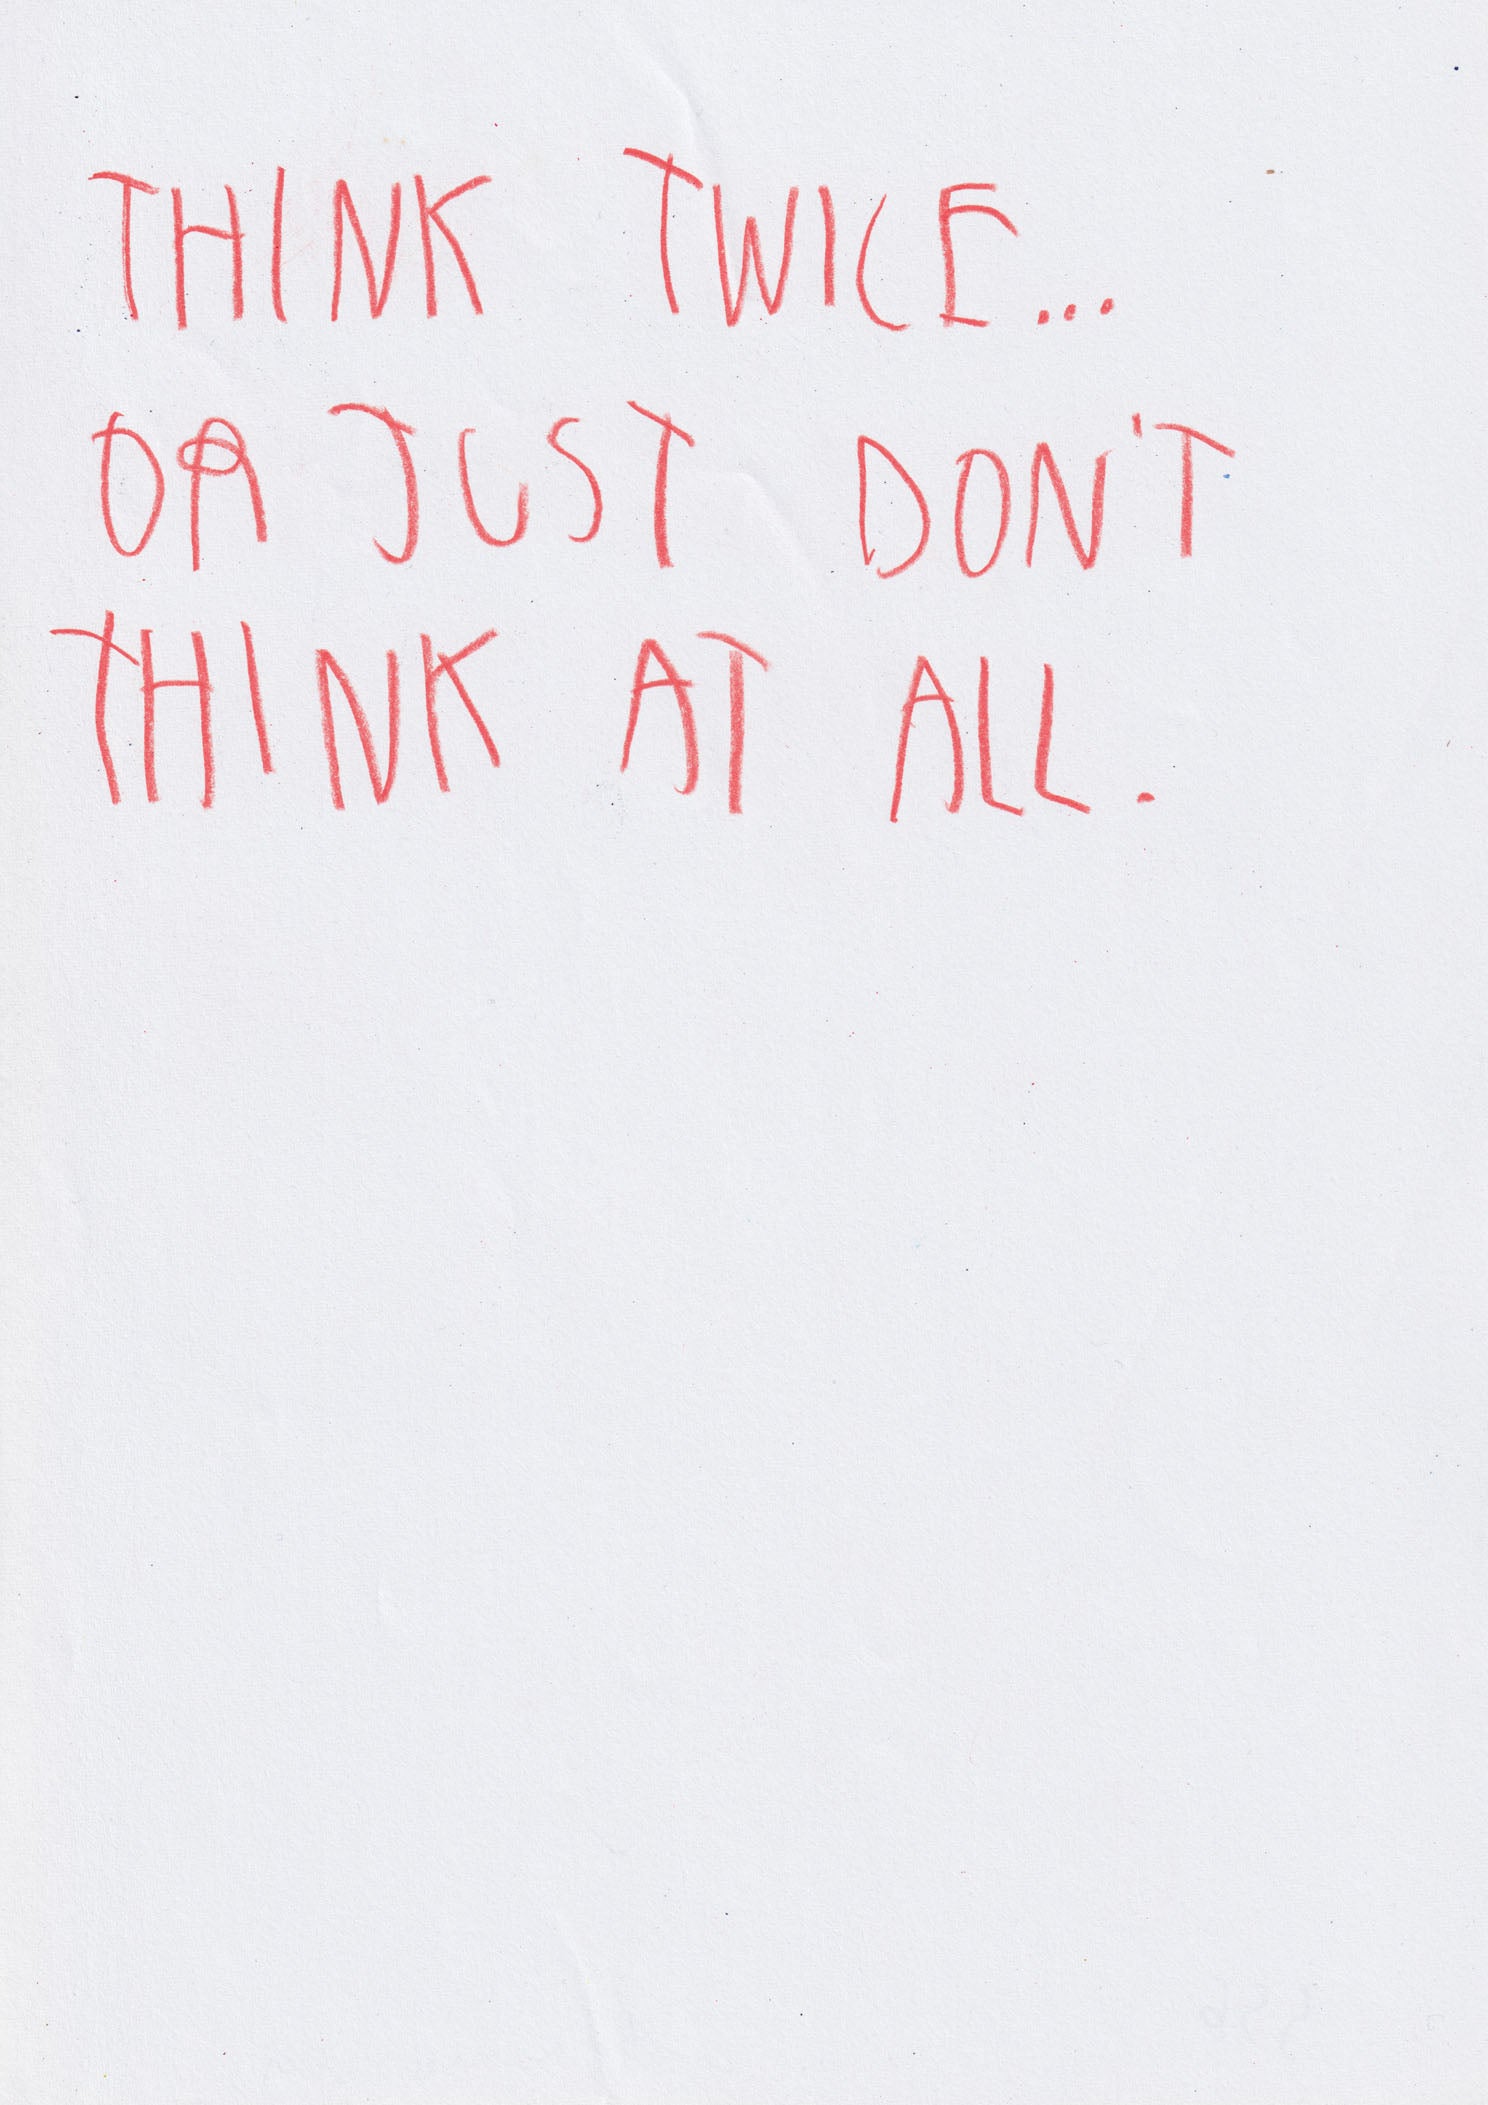 THINK TWICE...
OR JUST DON'T
THINK AT ALL.